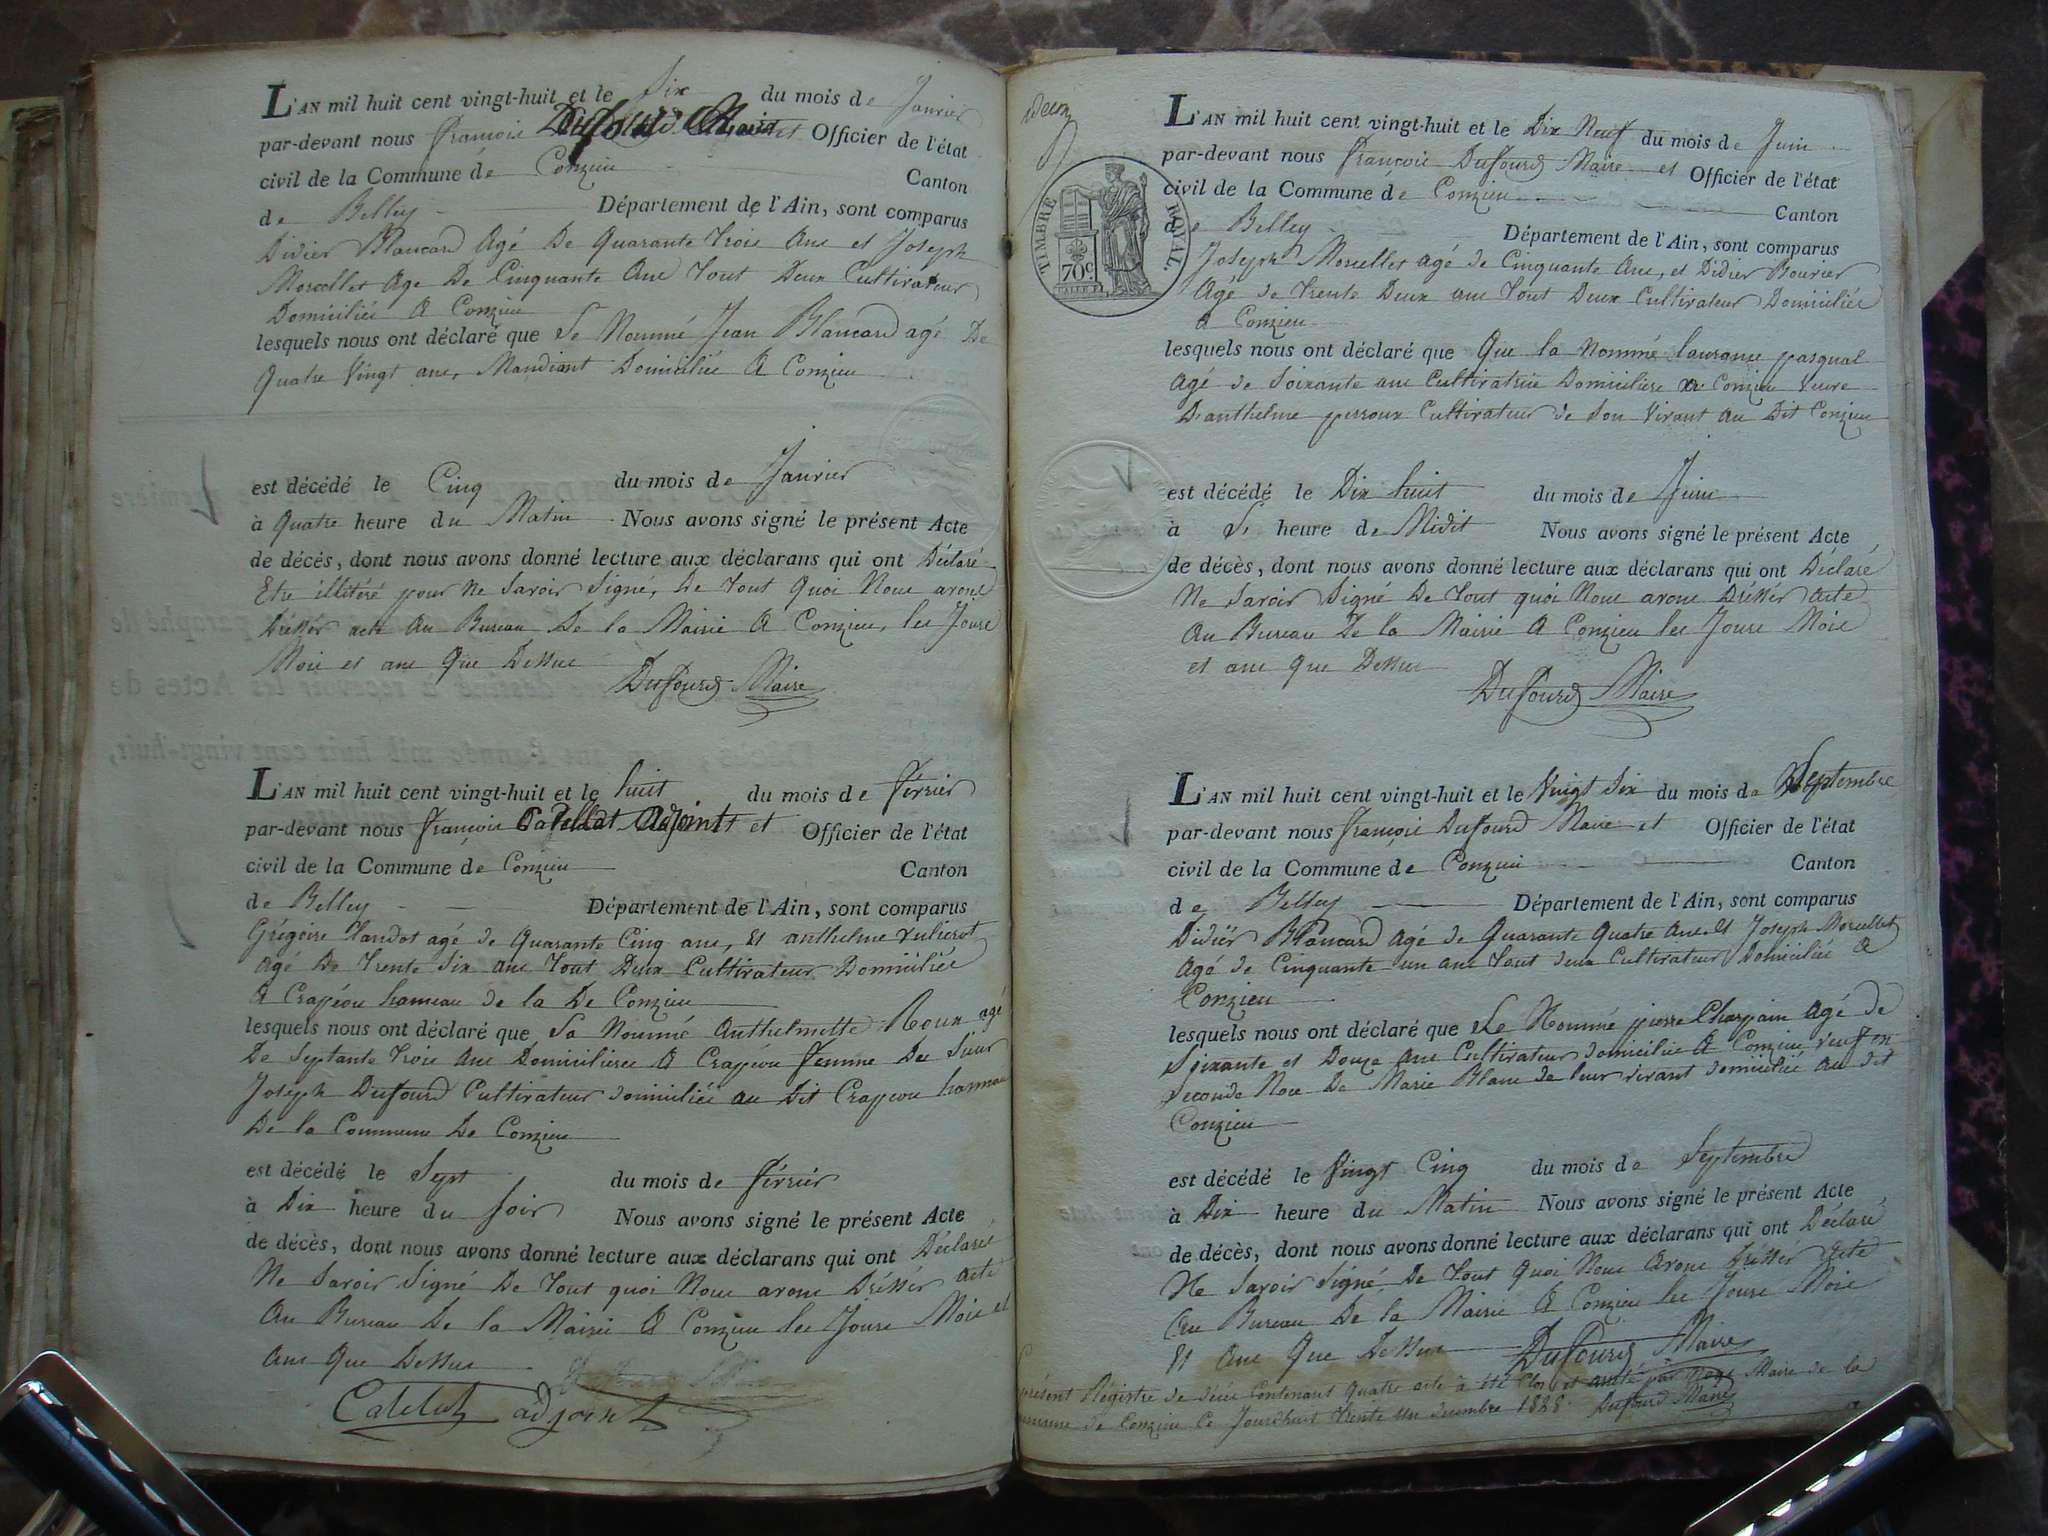 L'AN mil huit cent vingt-huit et le Six du mois de Janvier
par-devant nous françois Dufourd Maire et Officier de l'état
civil de la Commune de Conzieu Canton
de Belley Département de l'Ain, sont comparus
Didier Blancard Agé De Quarante trois Ans et Joseph
Morcellet Age De Cinquante Ans tout Deux Cultivateur
Domiciliés A Conzieu
lesquels nous ont déclaré que Le Nommé Jean Blancard agé De
Quatre Vingt ans, Mandiant Domicilié A Conzieu
est décédé le Cinq du mois de Janvier
à Quatre heure du Matin Nous avons signé le présent Acte
de décès, dont nous avons donné lecture aux déclarans qui ont Déclaré
Etre illitéré pour ne Savoir Signé, De tout Quoi Nous avons
Drésser acte Au Bureau De la Mairie A Conzieu, les Jours
Mois et ans Que Dessus Dufourd Maire
L'AN mil huit cent vingt-huit et le huit du mois de février
par-devant nous françois Catellat Adjoint et Officier de l'état
civil de la Commune de Conzieu Canton
de Belley Département de l'Ain, sont comparus
Grégoire agé de Quarante Cinq ans, Et anthelme
agé De trente Six ans tout Deux Cultivateur Domiciliés
A Crapéou hameau de la De Conzieu
lesquels nous ont déclaré que La Nommé Anthelmette Roux agé
De Septante trois Ans Domiciliée A Crapéou femme Du Sieur
Joseph Dufourd Cultivateur domicilié au Dit Crapéou hameau
De la Commune De Conzieu
est décédé le Sept du mois de février
à Dix heure du Soir Nous avons signé le présent Acte
de décès, dont nous avons donné lecture aux déclarans qui ont Déclaré
Ne Savoir Signé De tout quoi Nous avons Drésser acte
Au Bureau De la Mairie A Conzieu les Jours Mois et
Ans Que Dessus
Catellat adjoint
TIMBRE ROYAL
70c
L'AN mil huit cent vingt-huit et le Dix Neuf du mois de Juin
par-devant nous françois Dufourd Maire et Officier de l'état
civil de la Commune de Conzieu Canton
de Belley Département de l'Ain, sont comparus
Joseph Morcellet agé de Cinquante Ans, et Didier Bourier
Agé de trente Deux ans tout Deux Cultivateur Domiciliés
A Conzieu
lesquels nous ont déclaré que Que la Nommé pasqual
Agé de Soixante ans Cultivatrice Domiciliere A Conzieu Veuve
D'anthelme perroux Cultivateur de Son Vivant Au Dit Conzieu
est décédé le Dix huit du mois de Juin
à heure de Midit Nous avons signé le présent Acte
de décès, dont nous avons donné lecture aux déclarans qui ont Déclaré
Ne Savoir Signé De tout quoi Nous avons Drésser acte
Au Bureau De la Mairie A Conzieu les Jours Mois
et ans Que Dessus
Dufourd Maire
L'AN mil huit cent vingt-huit et le Vingt Six du mois de Septembre
par-devant nous françois Dufourd Maire et Officier de l'état
civil de la Commune de Conzieu Canton
de Belley Département de l'Ain, sont comparus
Didiër Blancard Agé de Quarante Quatre Ans Et Joseph Morcellet
Agé de Cinquante un ans tout deux Cultivateur Domiciliés A
Conzieu
lesquels nous ont déclaré que Le Nommé pierre Charpain Agé de
Soixante et Douze ans Cultivateur domicilié A Conzieu Veuf en
Seconde Noce De Marie Blanc de leur vivant domicilié Au dit
Conzieu
est décédé le Vingt Cinq du mois de Septembre
à Dix heure du Matin Nous avons signé le présent Acte
de décès, dont nous avons donné lecture aux déclarans qui ont Déclaré
Ne Savoir Signé De tout Quoi Nous avons Drésser Acte
Au Bureau De la Mairie A Conzieu les Jours Mois
Et Ans Que Dessus Dufourd Maire
présent Régistre de décès Contenant Quatre acte à été Clos et arrêté par Nous Maire de la
Commune de Conzieu Ce Jourdhuit trente un decembre 1828 Dufourd Maire